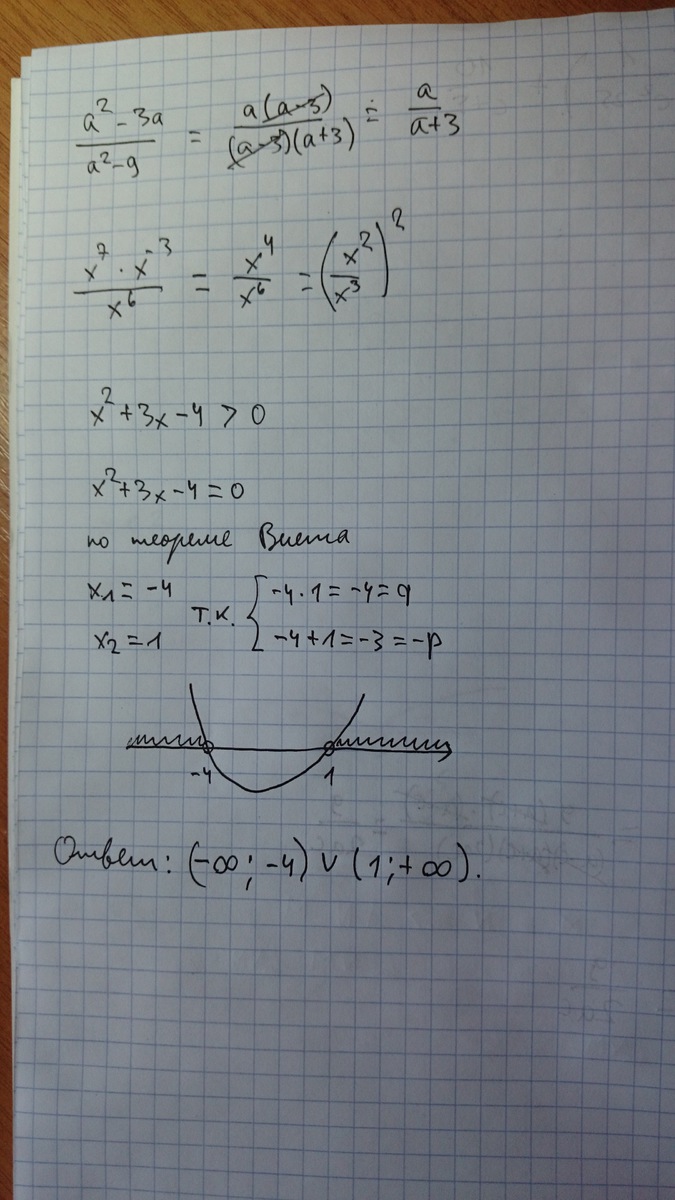 a² - 3a / a² - 9 = a(a-3) / (a-3)(a+3) = a / a+3
x⁷ · x⁻³ / x⁶ = x⁴ / x⁶ = (x² / x³)²
x² + 3x - 4 > 0
x² + 3x - 4 = 0
по теореме Виета
x₁ = -4
x₂ = 1
т.к. { -4 · 1 = -4 = q
-4 + 1 = -3 = -p
-4 1
Ответ: (-∞; -4) ∪ (1; +∞).